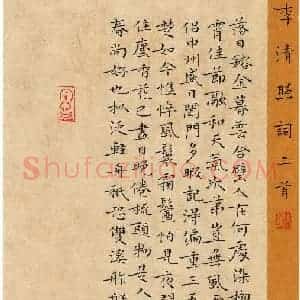 李清照詞二首
落日鎔金暮雲合璧人在何處染柳
宵佳節融和天氣次第豈無風
侶中州盛日閨門多暇記得偏重三五
楚如今憔悴風鬟霜鬢怕見夜
住塵香花已盡日晚倦梳頭物是人
春尚好也擬泛輕舟祇恐雙溪舴